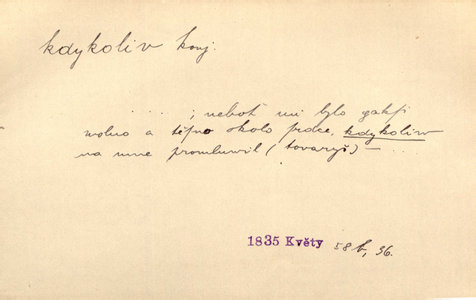 kdykoliv konj.
. . . . ; neboť mi bylo gaksi
wolno a těsno okolo srdce, kdykoliw
na mne promluwil (towaryš) — . . .
1835 Květy 58 b, 36.